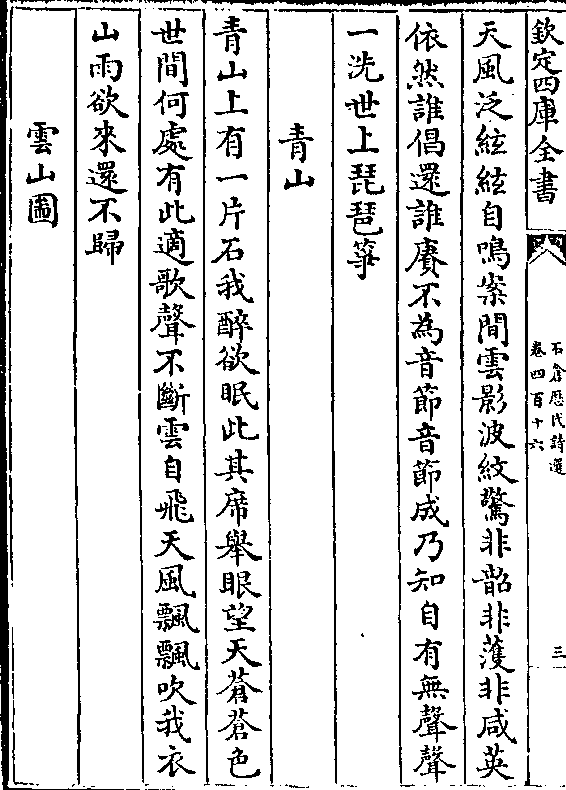 欽定四庫全書
石倉歷代詩選
卷四百十六
三
天風泛絃絃自鳴案間雲影波紋驚非韶非頀非咸英
依然誰倡還誰賡不為音節音節成乃知自有無聲聲
一洗世上琵琶箏
青山
青山上有一片石我醉欲眠此其席舉眼望天蒼蒼色
世間何處有此適歌聲不斷雲自飛天風飄飄吹我衣
山雨欲來還不歸
雲山圖